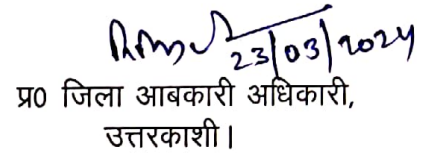 23/03/2024
प्र0 जिला आबकारी अधिकारी,
उत्तरकाशी।